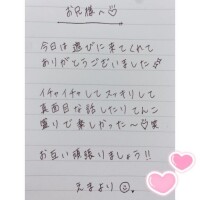 お兄様へ♡
今日は遊びに来てくれて
ありがとうございました
イチャイチャしてスッキリして
真面目な話したりてんこ
盛りで楽しかった〜♡笑
お互い頑張りましょう!!
えまより☺